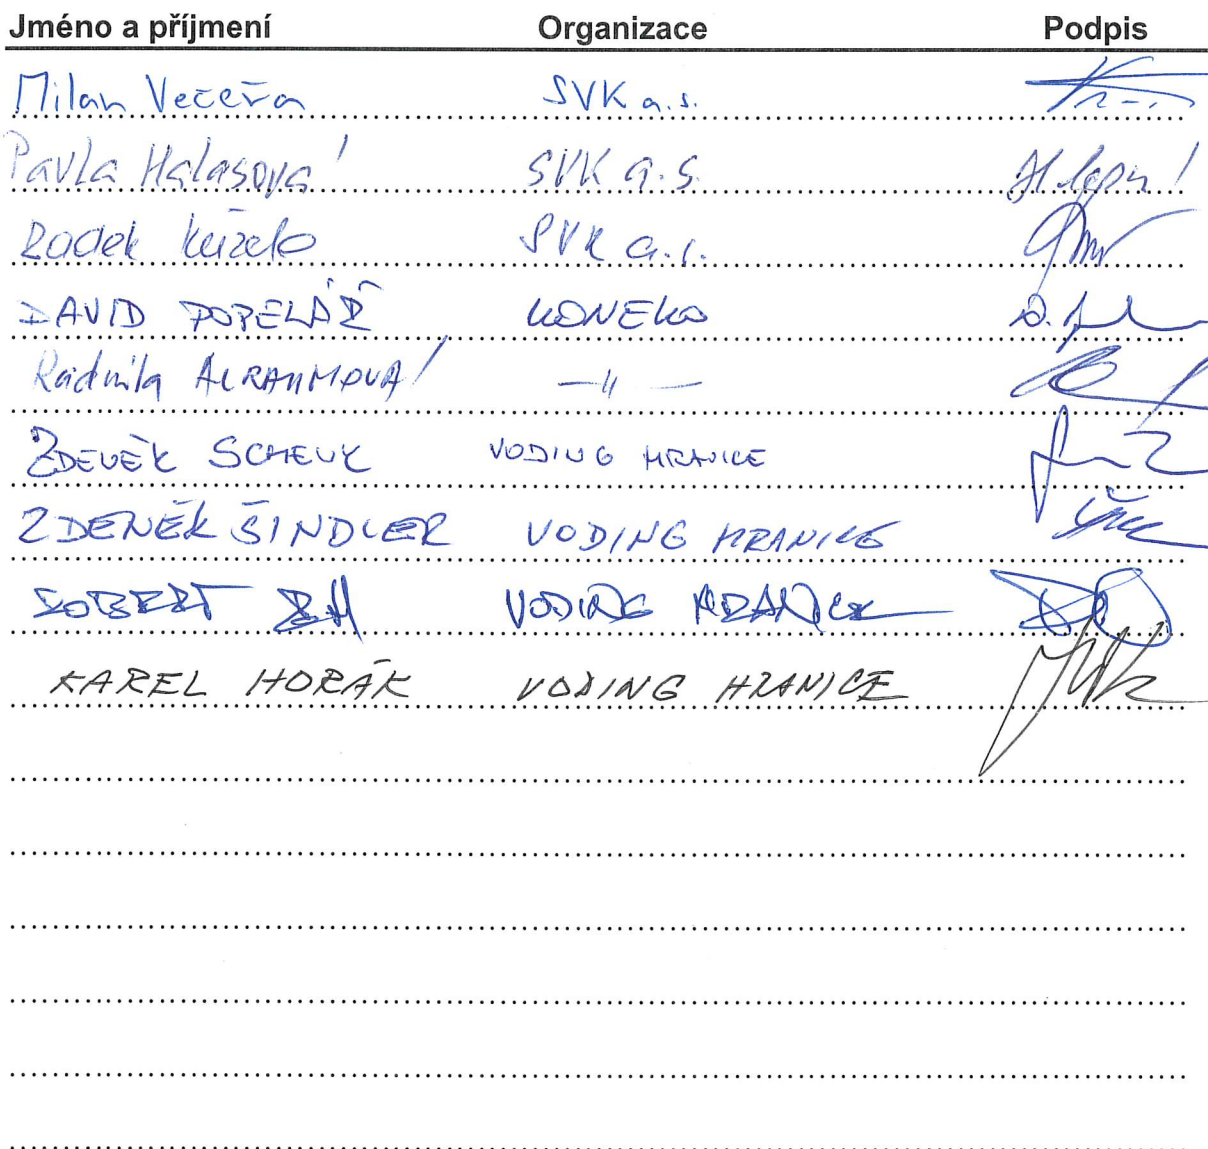 Jméno a příjmení Organizace Podpis
Milan Večeřa SVK a.s.
Pavla Halasová SVK a.s.
Radek SVK a.s.
DAVID POPELÁŘ KONEKO
Radmila —"—
ZDENĚK SCHENK VODING HRANICE
ZDENĚK ŠINDLER VODING HRANICE
ROBERT VODING HRANICE
KAREL HORÁK VODING HRANICE